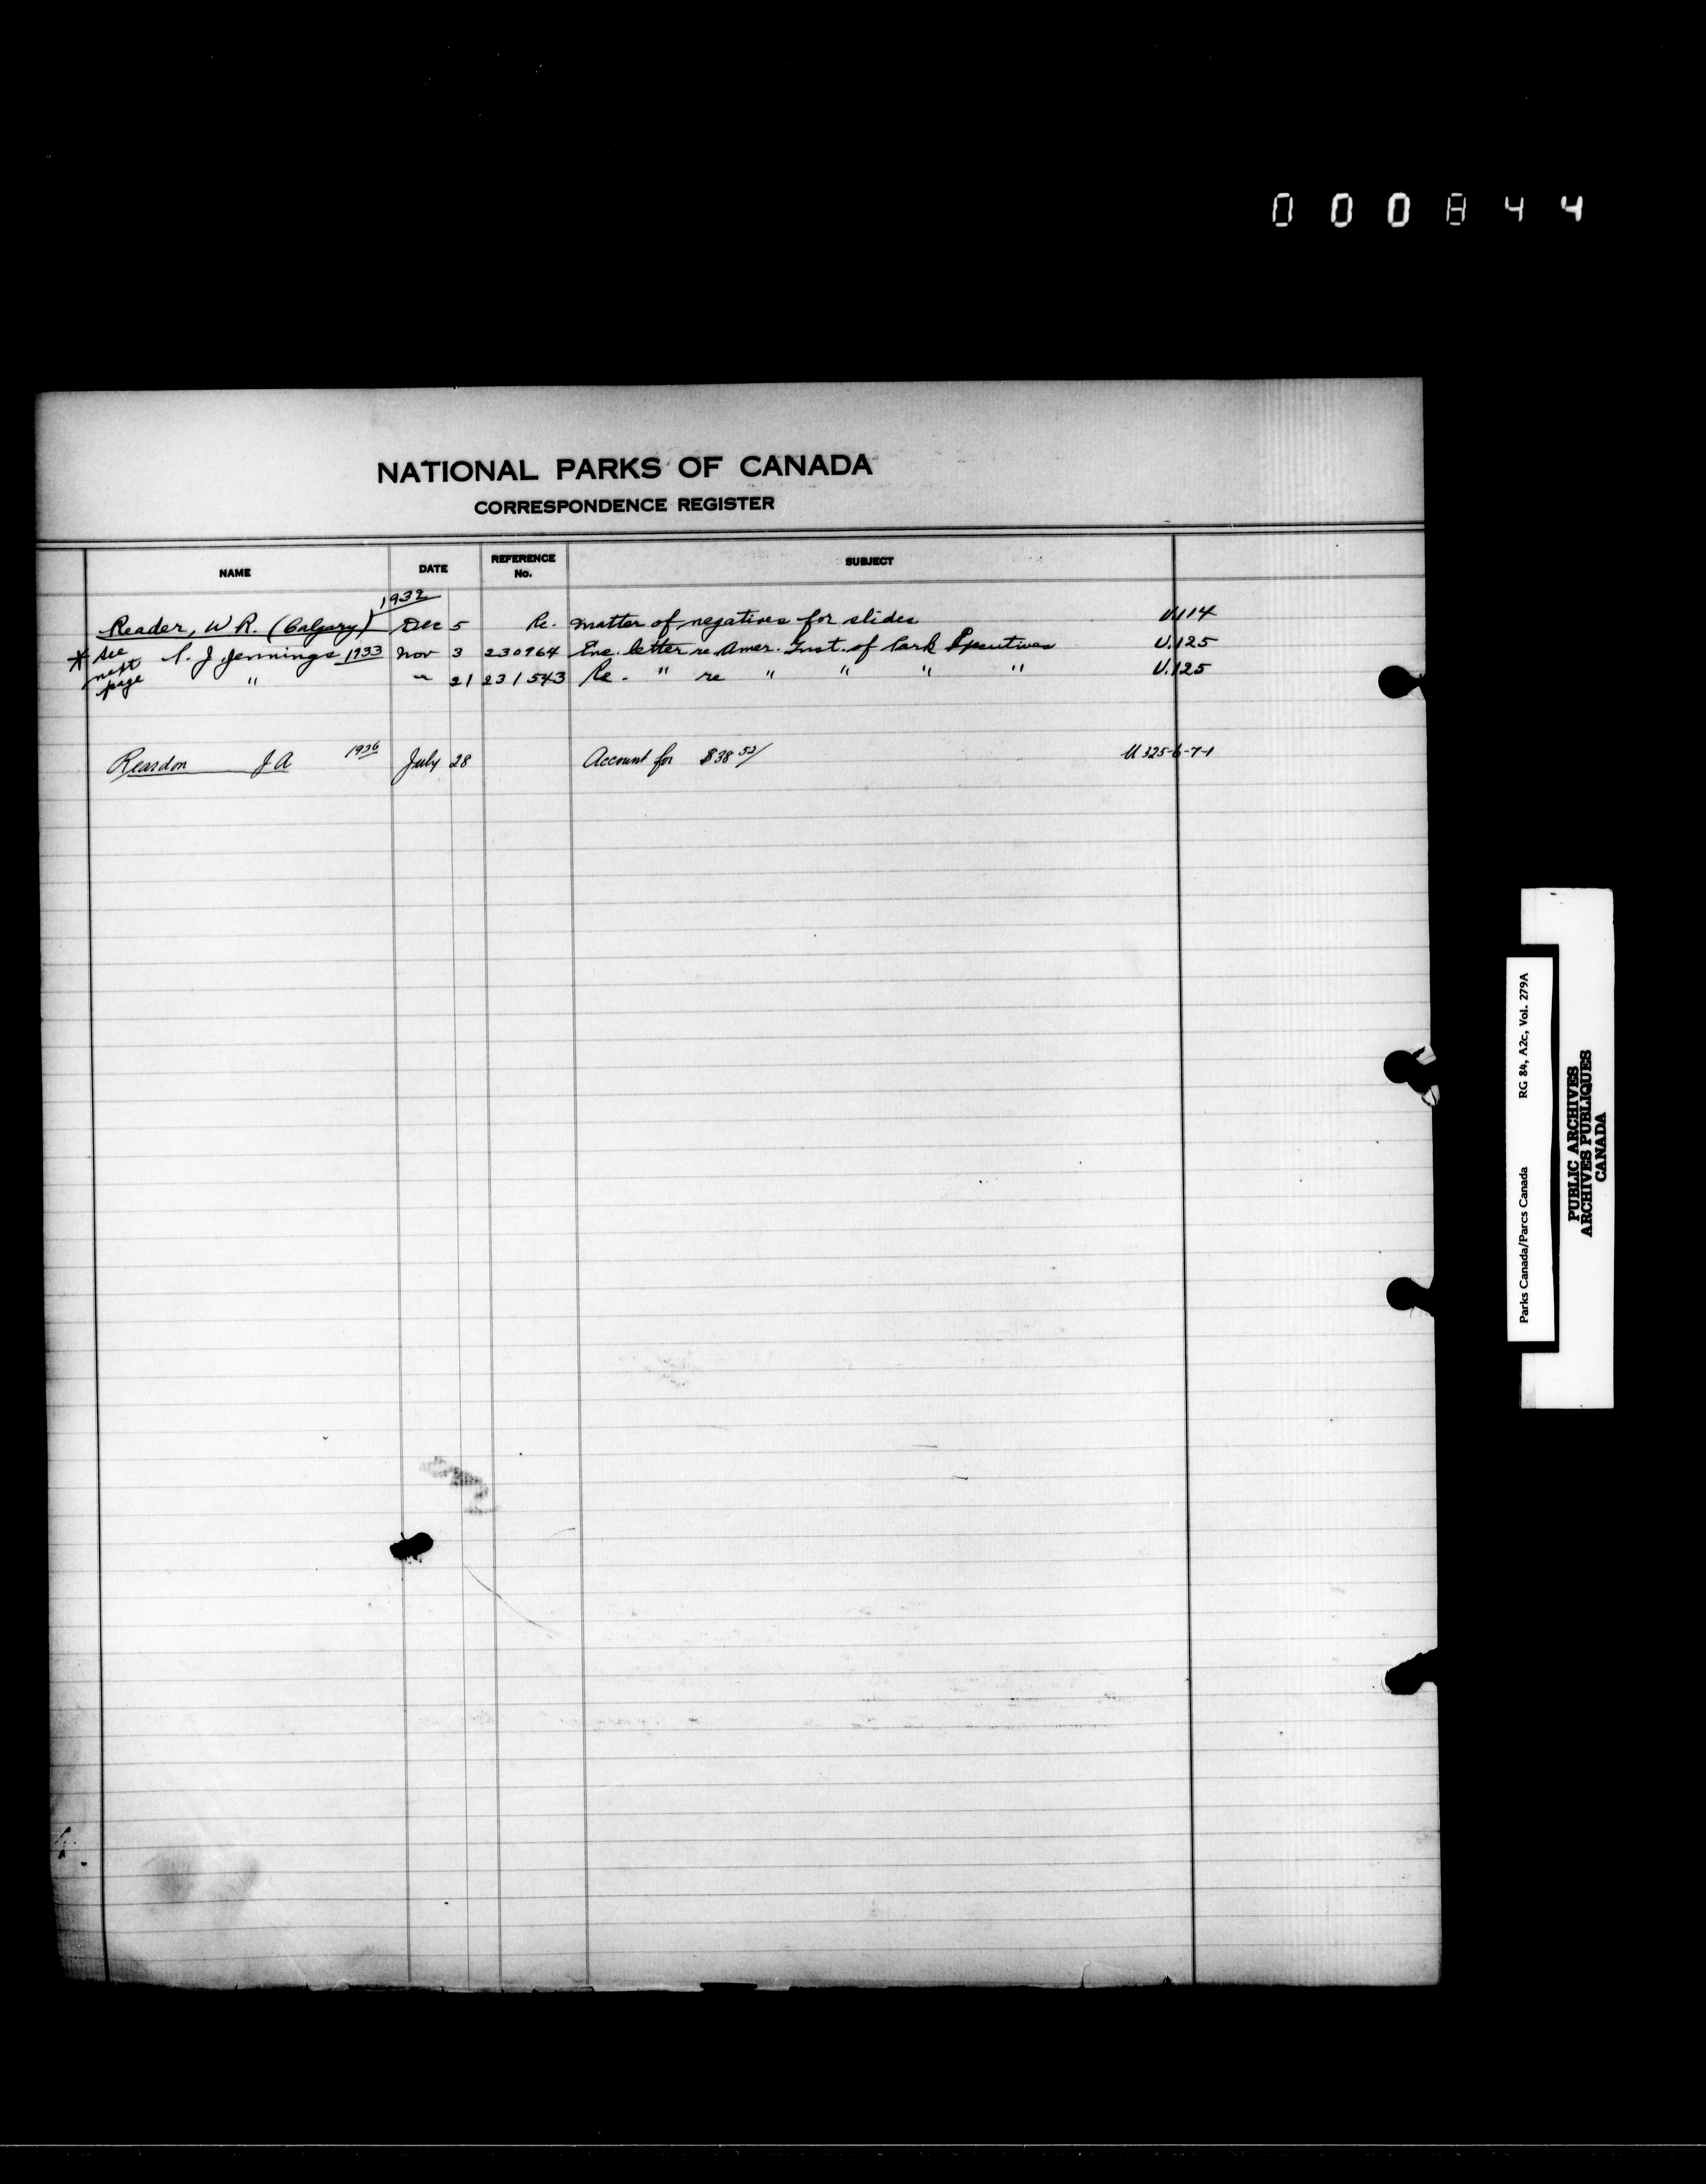 000844
NATIONAL PARKS OF CANADA
CORRESPONDENCE REGISTER
NAME DATE REFERENCE No. SUBJECT
1932
Reader, W R. (Calgary) Dec 5 Re. matter of negatives for slides U.114
* see next page J. Jennings 1933 Nov 3 230964 Enc. letter re Amer. Inst. of Park Executives U.125
" " 21 231543 Re. " re " " " " U.125
Reardon J A 1936 July 28 Account for $38 52/ U 325-6-7-1
Parks Canada/Parcs Canada RG 84, A2c, Vol. 279A
PUBLIC ARCHIVES
ARCHIVES PUBLIQUES
CANADA